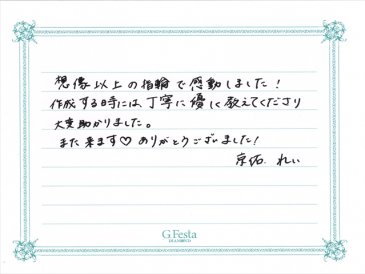 想像以上の指輪で感動しました!
作成する時には、丁寧に優しく教えてくださり
大変助かりました。
また来ます♡ありがとうございました!
れい
G.Festa
DIAMOND